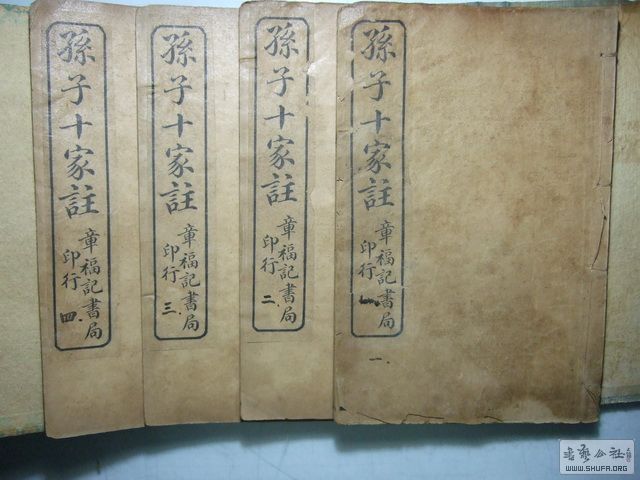 孫子十家註
章福記書局
印行
一
一.
孫子十家註
章福記書局
印行
二.
孫子十家註
章福記書局
印行
三.
孫子十家註
章福記書局
印行
四.
書藝公社
WWW.SHUFA.ORG